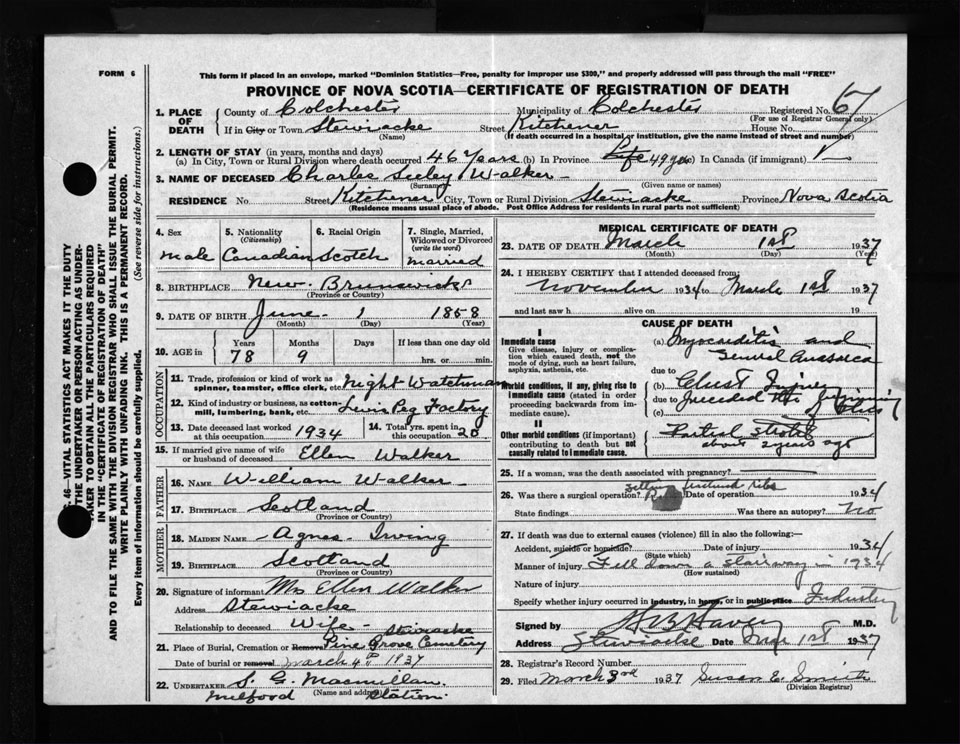 FORM 6
This form if placed in an envelope, marked "Dominion Statistics—Free, penalty for improper use $300," and properly addressed will pass through the mail "FREE"
PROVINCE OF NOVA SCOTIA—CERTIFICATE OF REGISTRATION OF DEATH
1. PLACE OF DEATH
County of Colchester Municipality of Colchester Registered No. 67
(For use of Registrar General only)
If in City or Town Stewiacke Street Kitchener House No.
(Name) (If death occurred in a hospital or institution, give the name instead of street and number)
2. LENGTH OF STAY (in years, months and days)
(a) In City, Town or Rural Division where death occurred 46 Years (b) In Province Life 49 yrs (c) In Canada (if immigrant)
3. NAME OF DECEASED Charles Seeley Walker
(Surname) (Given name or names)
RESIDENCE No Street Kitchener City, Town or Rural Division Stewiacke Province Nova Scotia
(Residence means usual place of abode. Post Office Address for residents in rural parts not sufficient)
4. Sex
male
5. Nationality
(Citizenship)
Canadian
6. Racial Origin
Scotch
7. Single, Married, Widowed or Divorced
(write the word)
married
8. BIRTHPLACE New Brunswick
(Province or Country)
9. DATE OF BIRTH June 1 1858
(Month) (Day) (Year)
10. AGE in Years Months Days If less than one day old
78 9 hrs. or min.
OCCUPATION
11. Trade, profession or kind of work as spinner, teamster, office clerk, etc. Night Watchman
12. Kind of industry or business, as cotton-mill, lumbering, bank, etc. Lewis Peg Factory
13. Date deceased last worked at this occupation 1934
14. Total yrs. spent in this occupation 20
15. If married give name of wife or husband of deceased Ellen Walker
FATHER
16. NAME William Walker
17. BIRTHPLACE Scotland
(Province or Country)
MOTHER
18. MAIDEN NAME Agnes Irving
19. BIRTHPLACE Scotland
(Province or Country)
20. Signature of informant Mrs Ellen Walker
Address Stewiacke
Relationship to deceased Wife
21. Place of Burial, Cremation or Removal Pine Grove Cemetery Stewiacke
Date of burial or removal March 4th 1937
22. UNDERTAKER S. G. Macmillan
(Name and address)
Milford Station
MEDICAL CERTIFICATE OF DEATH
23. DATE OF DEATH March 1st 1937
(Month) (Day) (Year)
24. I HEREBY CERTIFY that I attended deceased from:
November 1934 to March 1st 1937
and last saw h alive on 19
CAUSE OF DEATH
I
Immediate cause
Give disease, injury or complication which caused death, not the mode of dying, such as heart failure, asphyxia, asthenia, etc.
(a) Myocarditis and General Anasarca
due to
Morbid conditions, if any, giving rise to immediate cause (stated in order proceeding backwards from immediate cause).
(b) Chest Injury
due to Preceded the foregoing
(c)
II
Other morbid conditions (if important) contributing to death but not causally related to immediate cause.
Partial Stroke about 2 years ago
25. If a woman, was the death associated with pregnancy?
26. Was there a surgical operation? Date of operation 1934
fractured Ribs
State findings Was there an autopsy? No
27. If death was due to external causes (violence) fill in also the following:—
Accident, suicide or homicide? Date of injury 1934
(State which)
Manner of injury Fell down a stairway in 1934
(How sustained)
Nature of injury
Specify whether injury occurred in industry, in home, or in public place Industry
Signed by M.D.
Address Stewiacke Date Mar 1st 1937
28. Registrar's Record Number
29. Filed March 3rd 1937 Susan E. Smith
(Division Registrar)
S. 46—VITAL STATISTICS ACT MAKES IT THE DUTY
THE UNDERTAKER OR PERSON ACTING AS UNDERTAKER TO OBTAIN ALL THE PARTICULARS REQUIRED
IN THE "CERTIFICATE OF REGISTRATION OF DEATH"
AND TO FILE THE SAME WITH THE DIVISION REGISTRAR WHO SHALL ISSUE THE BURIAL PERMIT.
WRITE PLAINLY WITH UNFADING INK. THIS IS A PERMANENT RECORD.
Every item of information should be carefully supplied. (See reverse side for instructions.)